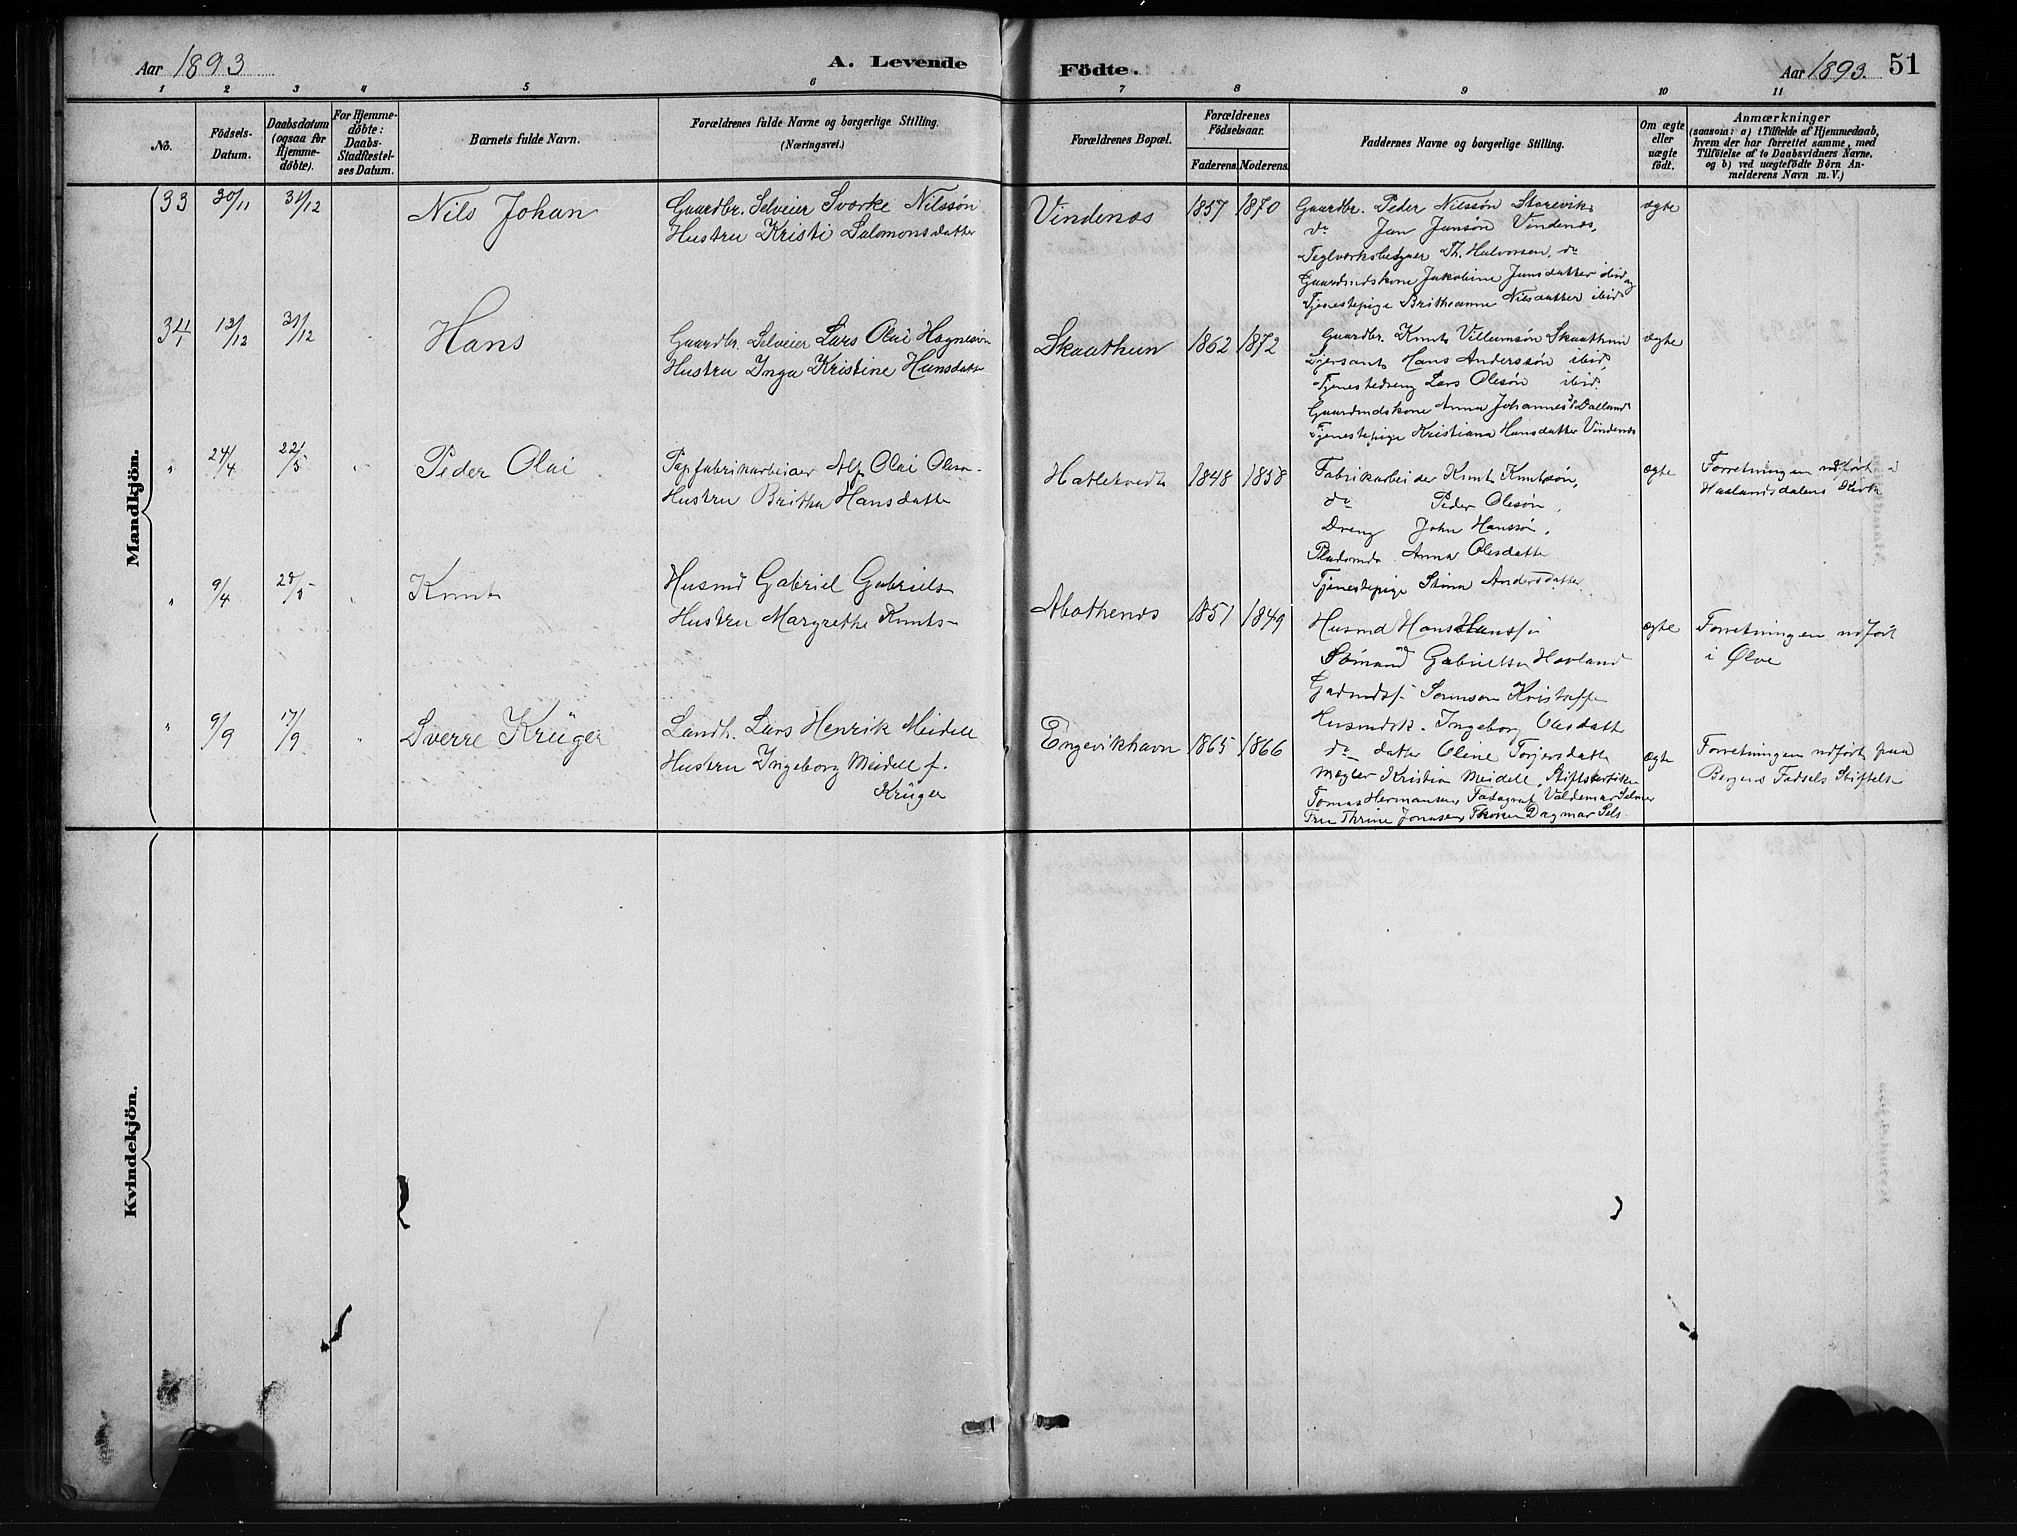 Aar 1893
A. Levende
Födte.
Aar 1893. 51
1 2 3 4 5 6 7 8 9 10 11
No.
Födsels-
Datum.
Daabsdatum
(ogsaa for
Hjemme-
döbte).
For Hjemme-
döbte:
Daabs-
Stadfæstel-
ses Datum.
Barnets fulde Navn.
Forældrenes fulde Navne og borgerlige Stilling.
(Næringsvei.)
Forældrenes Bopæl.
Forældrenes
Födselsaar.
Faderens. Moderens.
Faddernes Navne og borgerlige Stilling.
Om ægte
eller
uægte
födt.
Anmærkninger
(saasom: a) i Tilfælde af Hjemmedaab,
hvem der har forrettet samme, med
Tilföielse af to Daabsvidners Navne.
og b) ved uægtefödte Börn An-
melderens Navn m. V.)
Mandkjön.
33 30/11 31/12 Nils Johan
Gaardbr. Selveier Sværke Nilssøn
Hustru Kristi Salomonsdatter
Vindenæs 1857 1870
Gaardbr. Peder Nilssøn Storevik
do Jan Jansøn Vindenæs,
Th. Halvorsen, do
Gaardmdskone Jakobine Jansdatter ibid og
Tjenestepige Brithanne Nilsdatter ibid
ægte
34 12/12 31/12 Hans
Gaardbr. Selveier Lars Olai Hagnesøn
Hustru Inga Kristine Hansdatt
Skaathun 1862 1872
Gaardbr. Knut Villumsøn Skaathun
Hans Anderssøn ibid,
Tjenestedreng Lars Olesøn ibid.
Gaardmdskone Anna Johannesd Dalland
Tjenestepige Kristiana Hansdatter Vindenæs
ægte
" 24/4 22/5 " Peder Olai
Papfabrikarbeider Alf Olai Olsen
Hustru Britha Hansdatte
Hatletvedt 1848 1858
Fabrikarbeider Knut Knutsøn,
do Peder Olesøn,
Dreng John Hanssøn,
Anna Olesdatte
Tjenestepige Stina Andersdatter
ægte
Forretningen udført i
Haalandsdalens Kirke
" 9/4 28/5 " Knut
Husmd Gabriel Gabriels
Hustru Margrethe Knuts-
1851 1849
Husmd Hans Hanss
Sømand Gabrielsen Havland
Sørensen Kristoffe
Husmdsk. Ingeborg Olesdatt
do datter Oline Torjersdatt
ægte
Forretningen udført
i Ølve
" 9/9 17/9 " Sverre Krüger
Landh. Lars Henrik Meidell
Hustru Ingeborg Meidell f.
Krüger
Engevikhavn 1865 1866
Megler Kristian Meidell,
Tomas Hermansen, Valdemar Selmer
Fru Thrine Jonasen, Dagmar Sels
ægte
Forretningen udført paa
Bergens Fødsels Stiftelse
Kvindekjön.